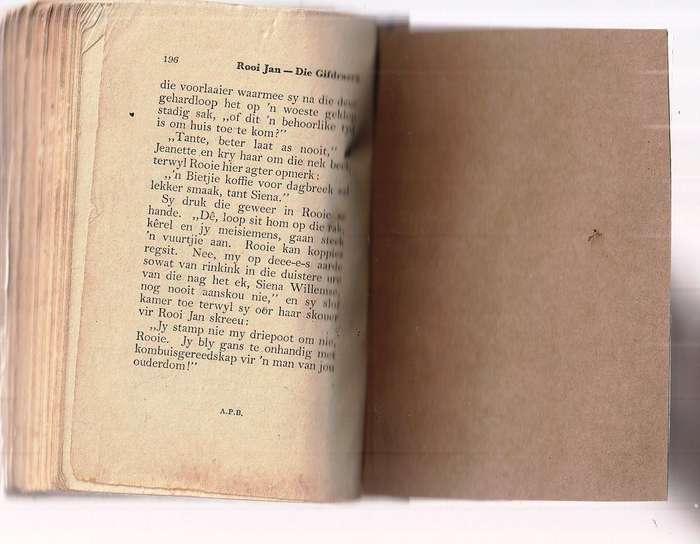 196
Rooi Jan — Die Gifdrwerg
die voorlaaier waarmee sy na die deur
gehardloop het op 'n woeste geklop
stadig sak, „of dit 'n behoorlike tyd
is om huis toe te kom?”
„Tante, beter laat as nooit,”
Jeanette en kry haar om die nek beet,
terwyl Rooie hier agter opmerk:
„'n Bietjie koffie voor dagbreek sal
lekker smaak, tant Siena.”
Sy druk die geweer in Rooie se
hande. „Dê, loop sit hom op die rak,
kêrel en jy meisiemens, gaan steek
'n vuurtjie aan. Rooie kan koppies
regsit. Nee, my op deee-e-s aarde
sowat van rinkink in die duistere ure
van die nag het ek, Siena Willemse,
nog nooit aanskou nie,” en sy slof
kamer toe terwyl sy oor haar skouer
vir Rooi Jan skreeu:
„Jy stamp nie my driepoot om nie,
Rooie. Jy bly gans te onhandig met
kombuisgereedskap vir 'n man van jou
ouderdom!”
A.P.B.